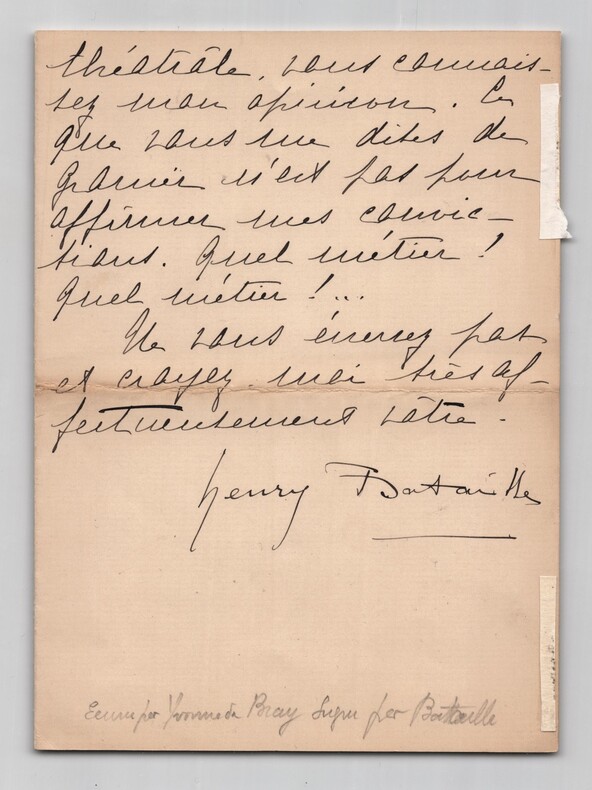 théâtrale, vous connais-
sez mon opinion. Ce
que vous me dites de
Granier n'est pas pour
affirmer mes convic-
tions. Quel métier !
Quel métier !...
Ne vous énervez pas
et croyez moi très af-
fectueusement vôtre.
Henry Bataille
Ecrit par Yvonne de Bray Signé par Bataille